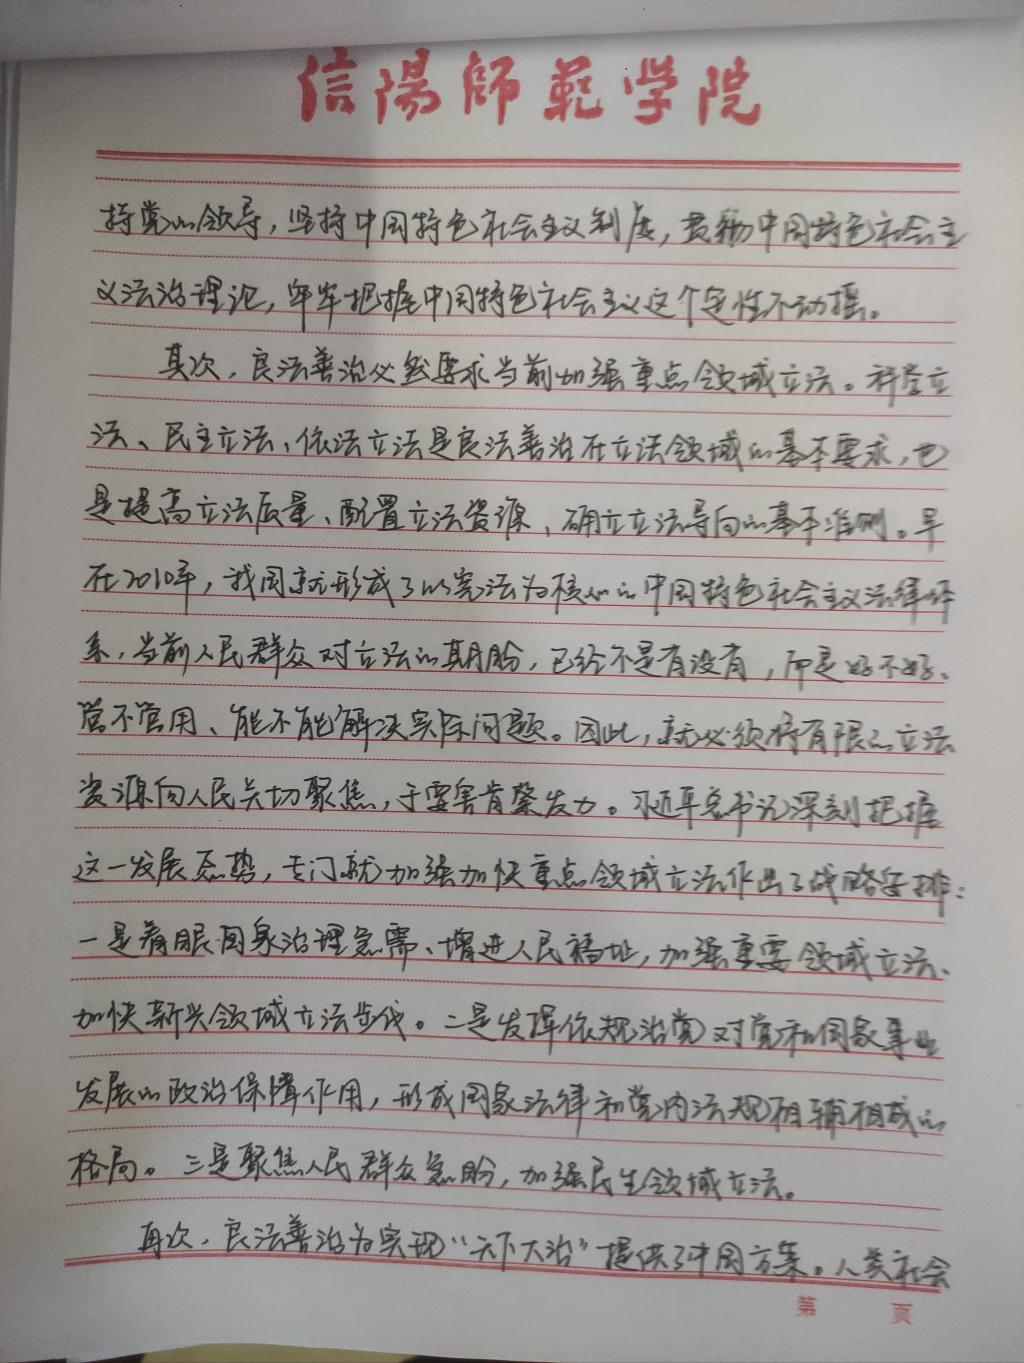 信陽師範学院
持党的领导，坚持中国特色社会主义制度，贯彻中国特色社会主
义法治理论，牢牢把握中国特色社会主义这个定性不动摇。
其次，良法善治必然要求当前加强重点领域立法。科学立
法、民主立法、依法立法是良法善治在立法领域的基本要求，也
是提高立法质量、配置立法资源、确立立法导向的基本准则。早
在2010年，我国就形成了以宪法为核心的中国特色社会主义法律体
系，当前人民群众对立法的期盼，已经不是有没有，而是好不好、
管不管用、能不能解决实际问题。因此，就必须将有限的立法
资源向人民关切聚焦，于要害肯綮发力。习近平总书记深刻把握
这一发展态势，专门就加强加快重点领域立法作出了战略安排：
一是着眼国家治理急需、增进人民福址，加强重要领域立法、
加快新兴领域立法步伐。二是发挥依规治党对党和国家事业
发展的政治保障作用，形成国家法律和党内法规相辅相成的
格局。三是聚焦人民群众急盼，加强民生领域立法。
再次，良法善治为实现“天下大治”提供了中国方案。人类社会
第 页